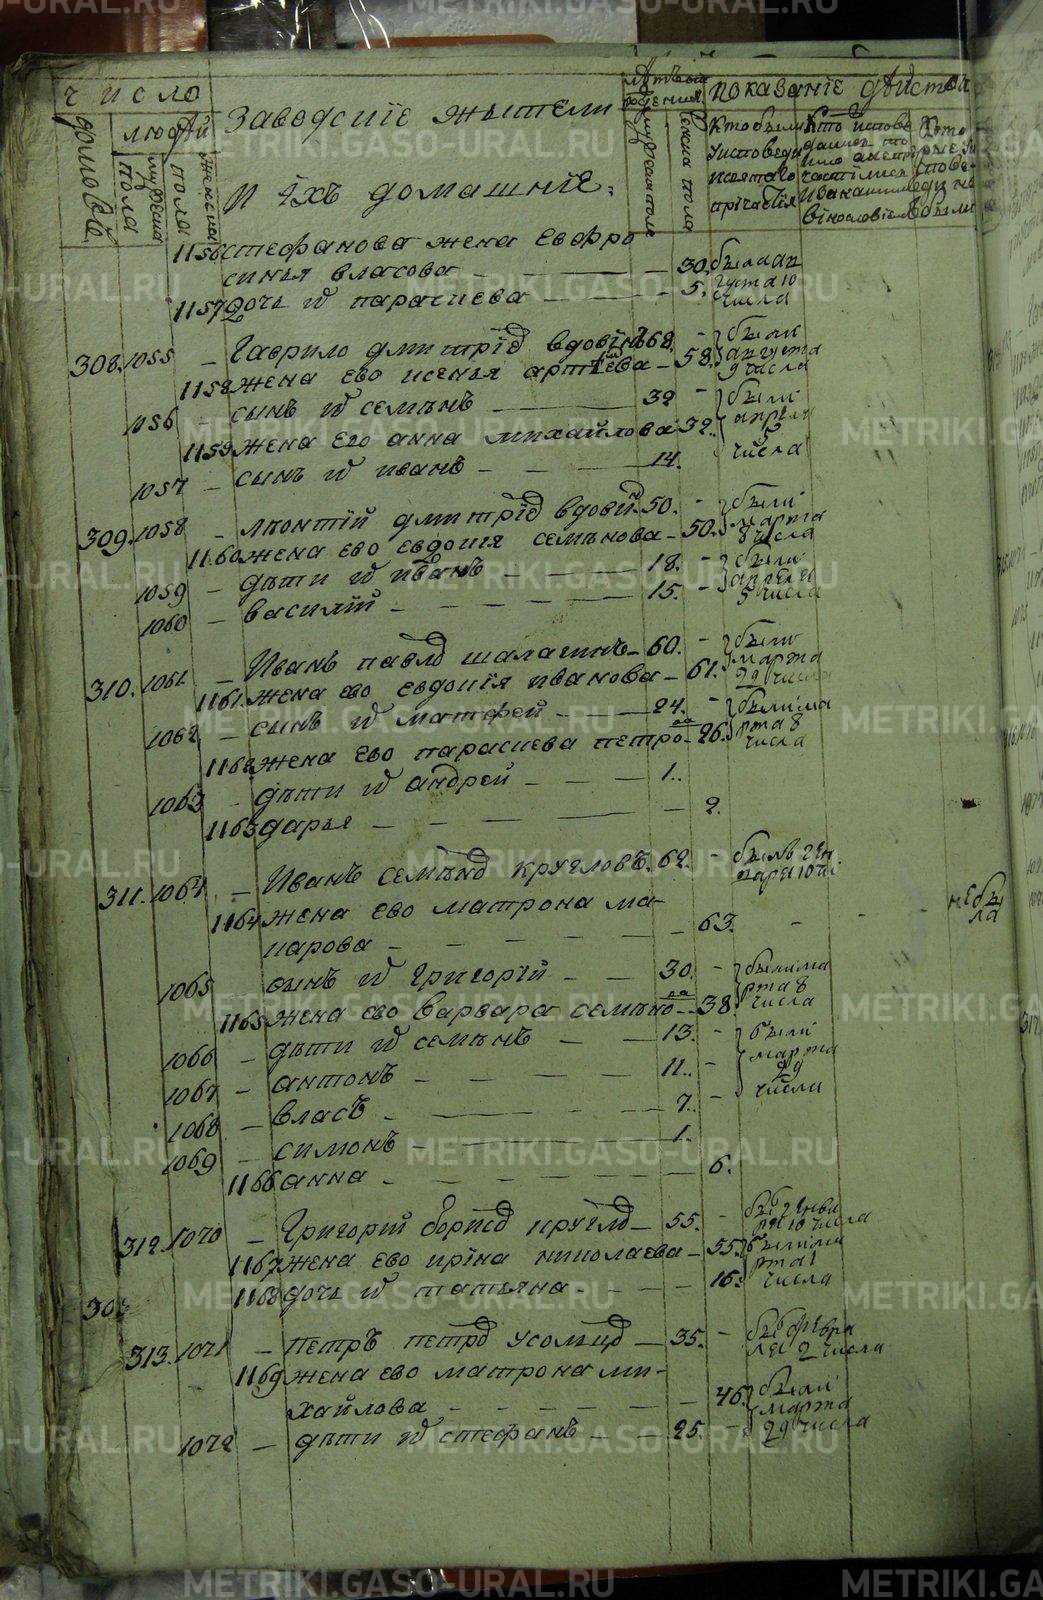 число
заводскïе жытели
и ихъ домашнïе.
людей
домовъ
мужеска
пола
женска
пола
показанïе действа
1156 стефанова жена Евфро
синья власова — 30. была ав
густа 10
числа
1157 дочь их парасковья — 5.
308. 1055 — Гаврило дмитрïев вдовинъ 68 — были
августа
9 числа
1158 жена ево ксенья артемьева — 58.
1056 — сынъ их семенъ — 32 — были
апреля
5
числа
1159 жена его анна михайлова 32.
1057 — сынъ их иванъ — 14.
309. 1058 — леонтïй дмитрïев вдовин 50. — были
марта
8 числа
1160 жена ево евдокïя семенова — 50.
1059 — дети их иванъ — 18. — были
апреля
5 числа
1060 — василïй — 15.
310. 1061 — Иванъ павлов шалагинъ — 60. — были
марта
29 числа
1161. жена ево евдокïя иванова — 61.
1062 — сынъ их матфей — 24. — были ма
рта 8
числа
1162 жена ево парасковья петрова — 26.
1063 — дети их андрей — 1.
1163 дарья — 2.
311. 1064 — Иванъ семенов кругловъ. 62. былъ ген
варя 10 чи.
1164 жена ево матрона ма-
карова — 63. — не бы
ла
1065 сынъ их григорïй — 30. — были ма
рта 8
числа
1165 жена ево варвара семенова — 38.
1066 — дети их семенъ — 13. — были
марта
29
числа
1067 — антонъ — 11.
1068 — власъ — 7.
1069 — симонъ — 1.
1166 анна — 6.
312. 1070 — Григорïй борисов круглов — 55. — бы генва
ря 10 числа
1167 жена ево ирïна николаева — 55. были ма
рта 1
числа
1168 дочь их татьяна — 16.
303
313. 1071 — петръ петров усольцов — 35. — бы февра
ля 2 числа
1169 жена ево матрона ми-
хайлова — 46. были
марта
29 числа
1072 — дети их стефанъ — 25.
METRIKI.GASO-URAL.RU